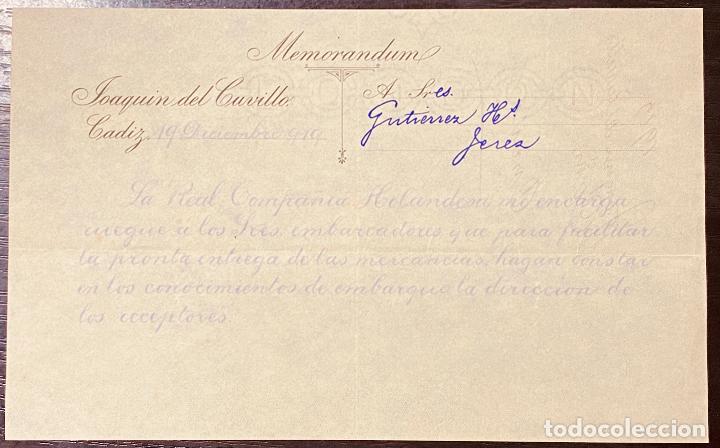 Memorandum
Joaquin del Cuvillo.
Cadiz, 19 Diciembre 1910
A Sres.
Gutiérrez Hs.
Jerez
La Real Compañia Holandesa me encarga
ruegue a los Sres. embarcadores que para facilitar
la pronta entrega de las mercancias, hagan constar
en los conocimientos de embarque la direccion de
los receptores.
todocoleccion